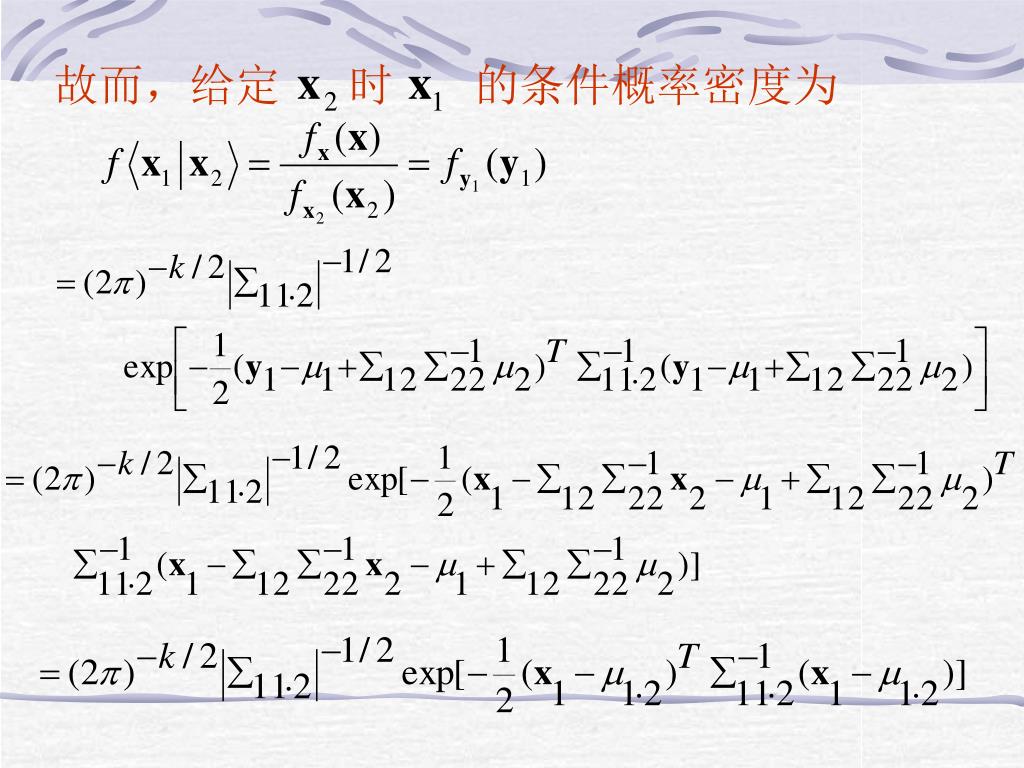 故而，给定 x₂ 时 x₁ 的条件概率密度为
f⟨x₁|x₂⟩ = f_x(x) / f_{x₂}(x₂) = f_{y₁}(y₁)
= (2π)^{−k/2} |∑_{11·2}|^{−1/2}
exp[−1/2 (y₁−μ₁+∑₁₂ ∑₂₂^{−1} μ₂)^T ∑_{11·2}^{−1} (y₁−μ₁+∑₁₂ ∑₂₂^{−1} μ₂)]
= (2π)^{−k/2} |∑_{11·2}|^{−1/2} exp[−1/2 (x₁ − ∑₁₂ ∑₂₂^{−1} x₂ − μ₁ + ∑₁₂ ∑₂₂^{−1} μ₂)^T
∑_{11·2}^{−1} (x₁ − ∑₁₂ ∑₂₂^{−1} x₂ − μ₁ + ∑₁₂ ∑₂₂^{−1} μ₂)]
= (2π)^{−k/2} |∑_{11·2}|^{−1/2} exp[−1/2 (x₁ − μ_{1·2})^T ∑_{11·2}^{−1} (x₁ − μ_{1·2})]